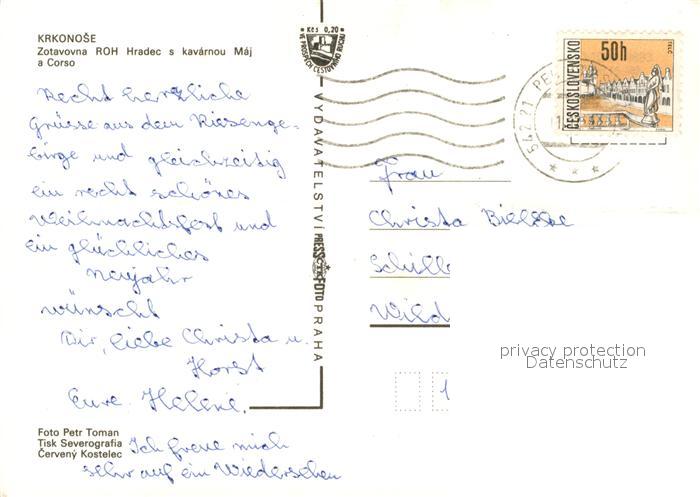 KRKONOŠE
Zotavovna ROH Hradec s kavárnou Máj
a Corso
Recht herzliche
Grüsse aus dem Riesenge-
birge und gleichzeitig
ein recht schönes
Weihnachtsfest und
ein glückliches
Neujahr
wünscht
Dir, liebe Christa u.
Horst
Eure Helene.
Ich freue mich
sehr auf ein Wiedersehen
Foto Petr Toman
Tisk Severografia
Červený Kostelec
Kčs 0,20
VE PROSPĚCH CESTOVNÍHO RUCHU
VYDAVATELSTVÍ PRESSFOTO PRAHA
50h
ČESKOSLOVENSKO
TELČ
542 21 PE
Frau
Christa
Schill
Wild
1
privacy protection
Datenschutz